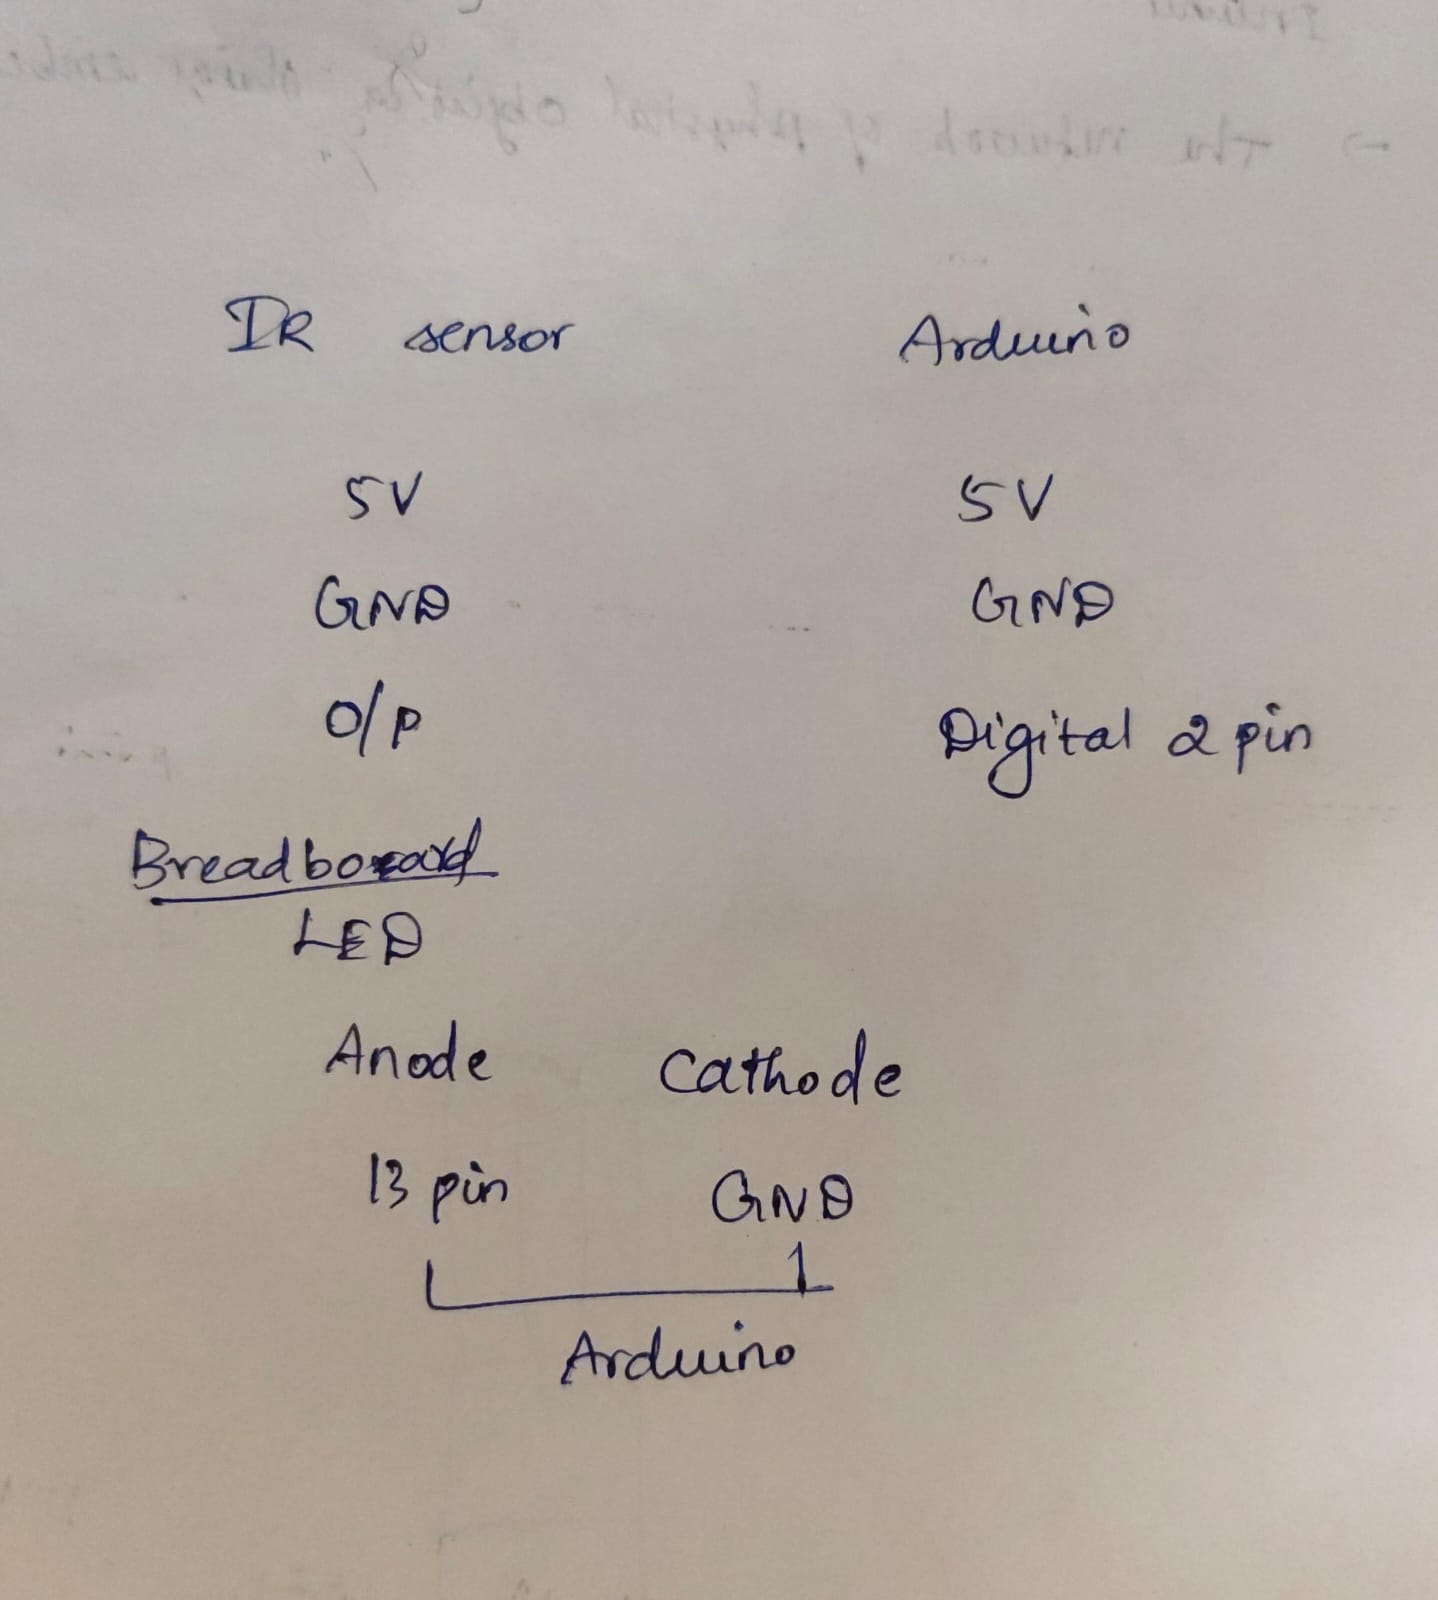 IR sensor Arduino
5V 5V
GND GND
O/P Digital 2 pin
Breadboard
LED
Anode Cathode
13 pin GND
Arduino